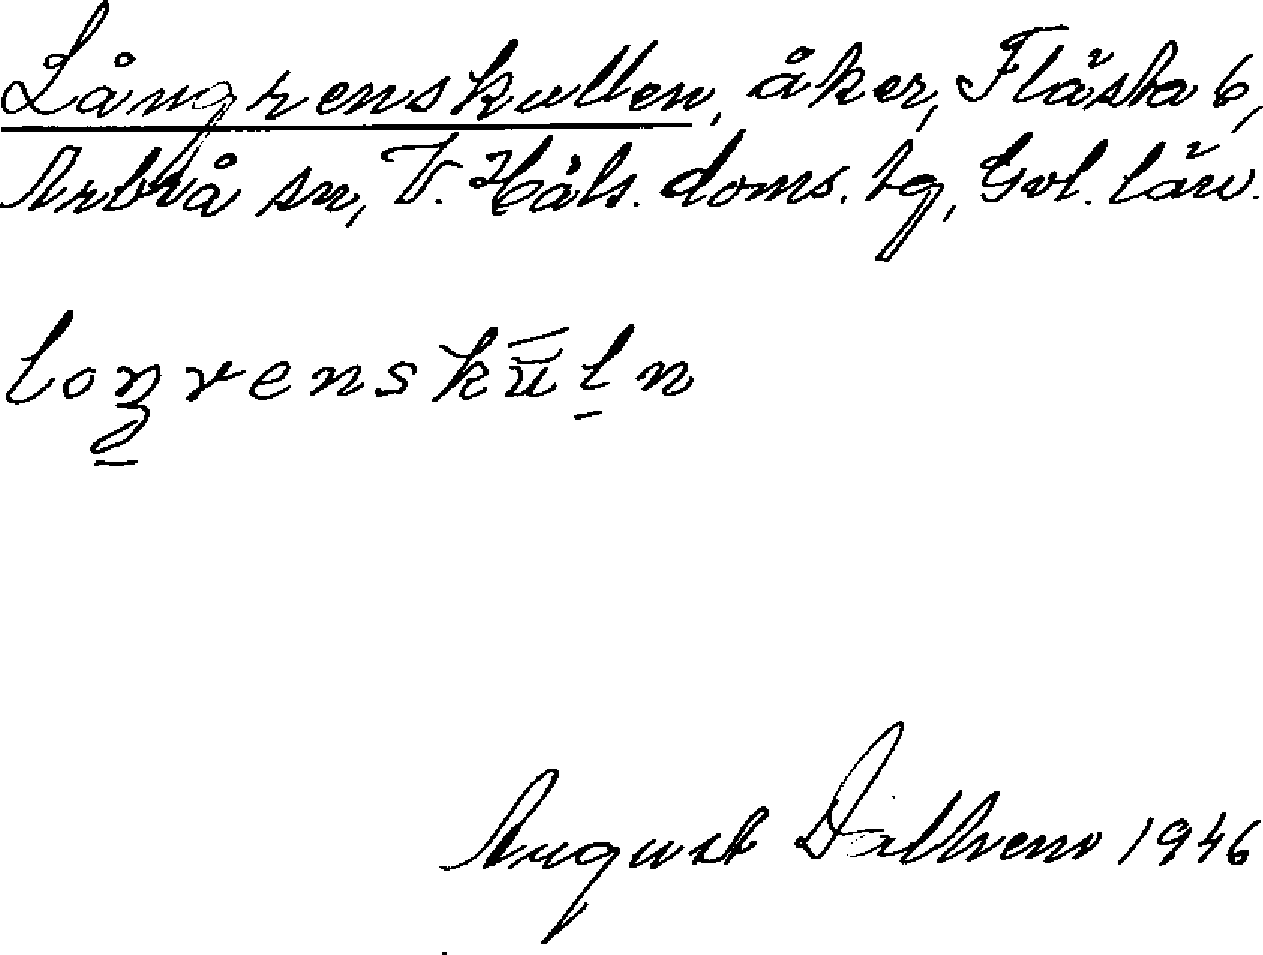 Långrenskullen, åker, Flästa 6,
Arbrå sn, V. Häls. doms. tg, Gvl. län.
loŋrenskūl̠n
August Dalhem 1946